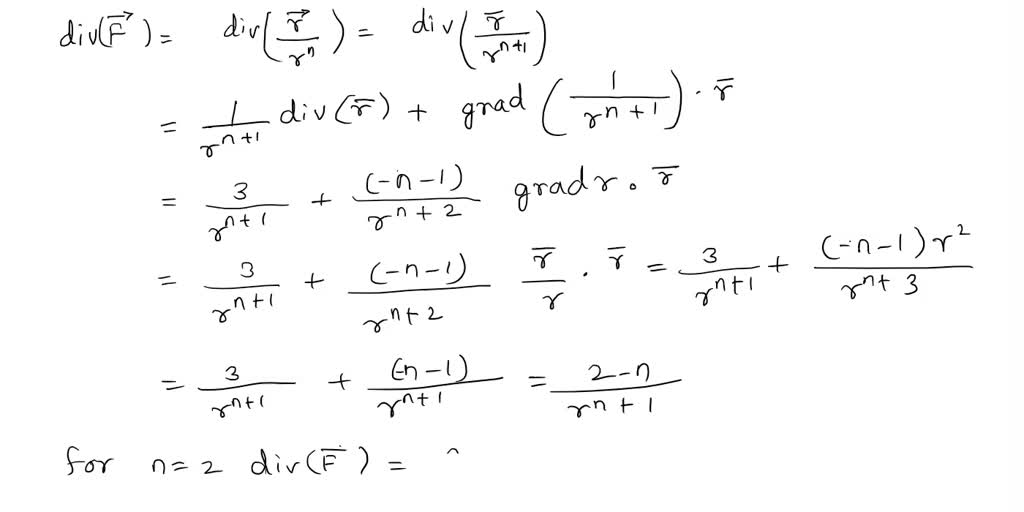 div(F⃗) = div(r⃗/rⁿ) = div(r̄/rⁿ⁺¹)
= 1/rⁿ⁺¹ div(r̄) + grad(1/rⁿ⁺¹) · r̄
= 3/rⁿ⁺¹ + (-n-1)/rⁿ⁺² grad r · r̄
= 3/rⁿ⁺¹ + (-n-1)/rⁿ⁺² r̄/r · r̄ = 3/rⁿ⁺¹ + (-n-1)r²/rⁿ⁺³
= 3/rⁿ⁺¹ + (-n-1)/rⁿ⁺¹ = 2-n/rⁿ⁺¹
for n=2 div(F̄) =